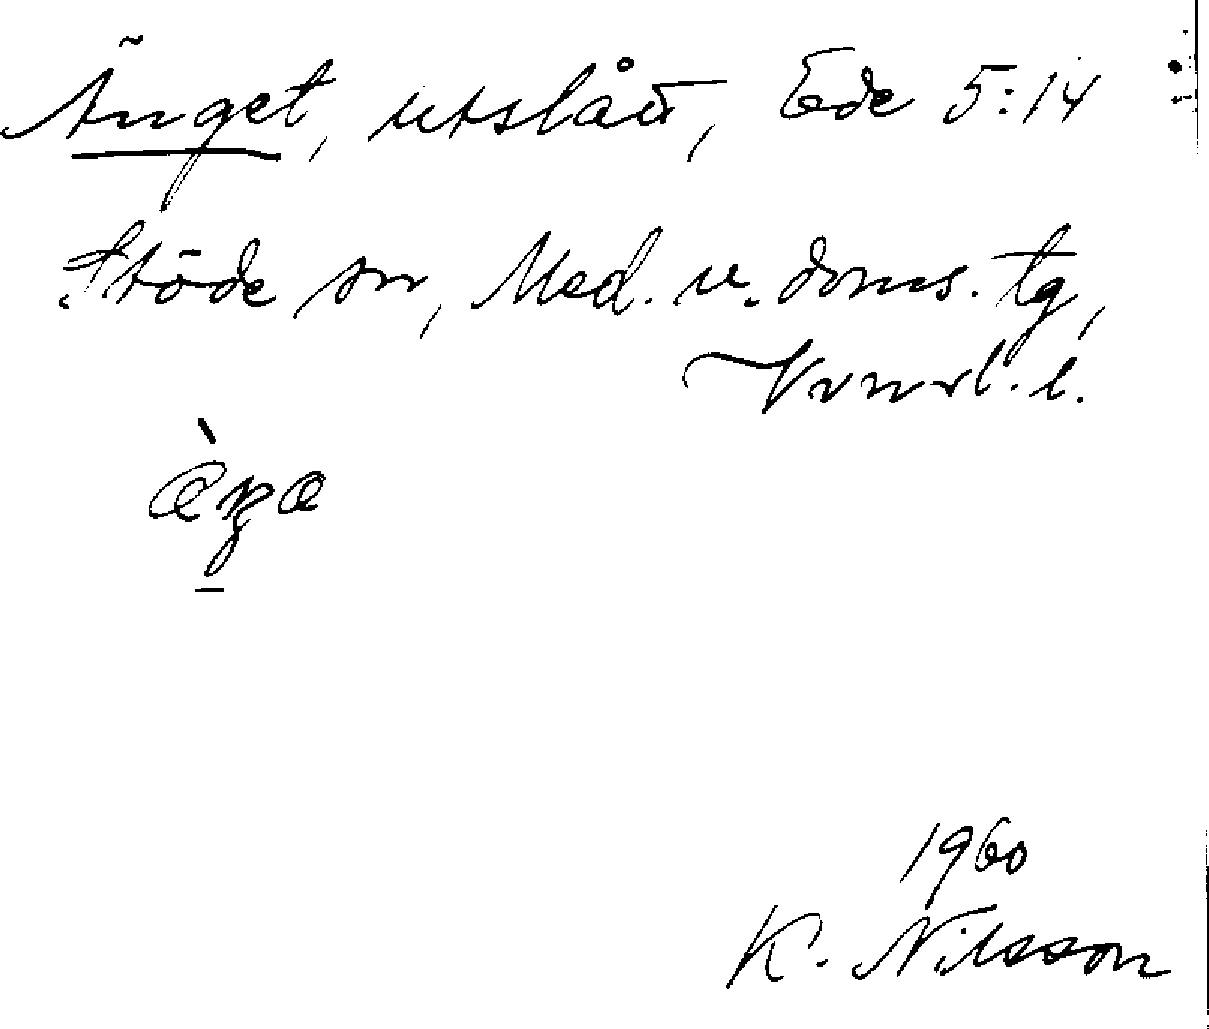 Änget, utslått, Ede 5:14
Stöde sn, Med. v. doms. tg,
Vvnrl. l.
1960
K. Nilsson